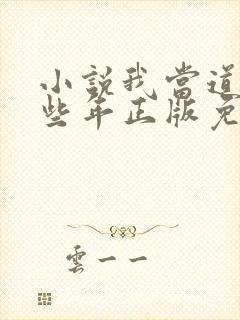 小說我當道
些年正版免
雲一一